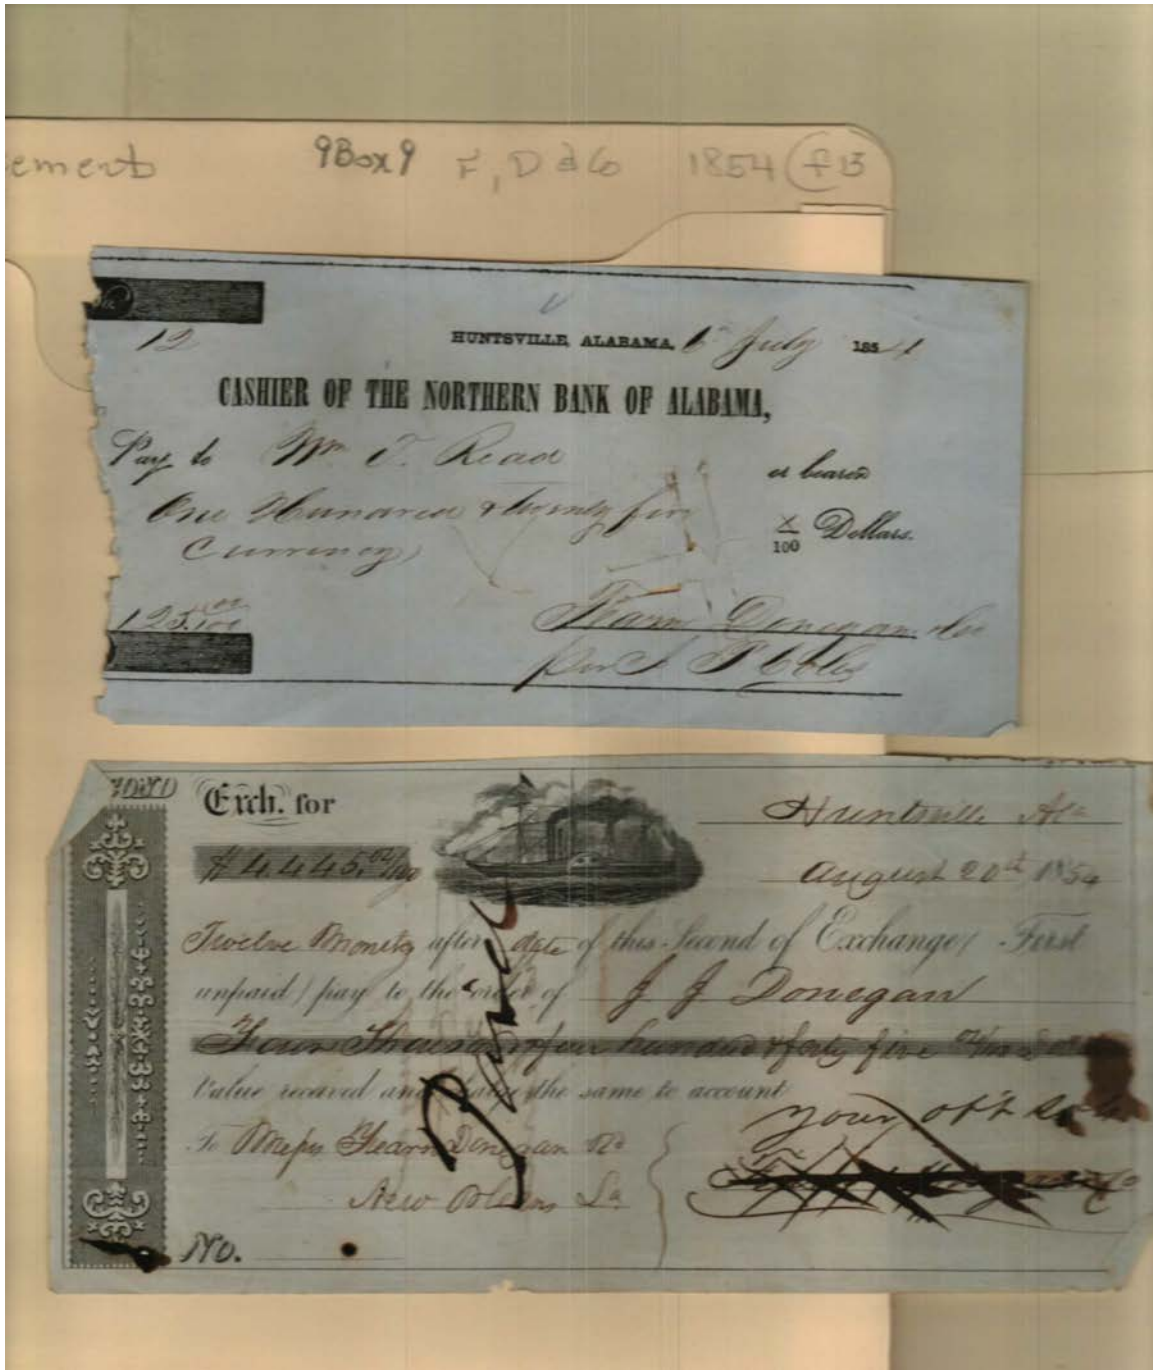 ement 9Box9 F, D & Co 1854 f 13
12
HUNTSVILLE, ALABAMA, 6th July 1854
CASHIER OF THE NORTHERN BANK OF ALABAMA,
Pay to Wm T. Read or bearer
One Hundred & twenty five X/100 Dollars.
Currency
125.00/100
Fearn Donegan & Co
per
Exch. for Huntsville Ala
$4.445.02/100 August 20th 1854
Twelve Months after date of this Second of Exchange, First
unpaid, pay to the order of J J Donegan
Four Thousand four hundred & forty five 02/100
Value received and the same to account
your ob't
To Messrs Fearn Donegan & Co
New Orleans La
No.